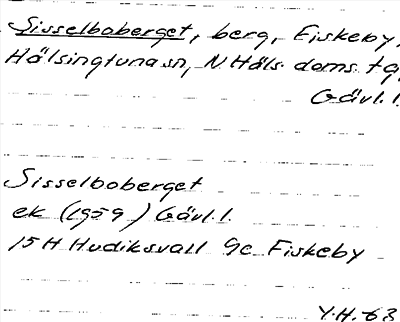 Sisselboberget, berg, Fiskeby,
Hälsingtuna sn, N Häls. doms. tg,
Gävl. l.
Sisselboberget
ek (1959) Gävl. l.
15H Hudiksvall 9c Fiskeby
Y.H. 63